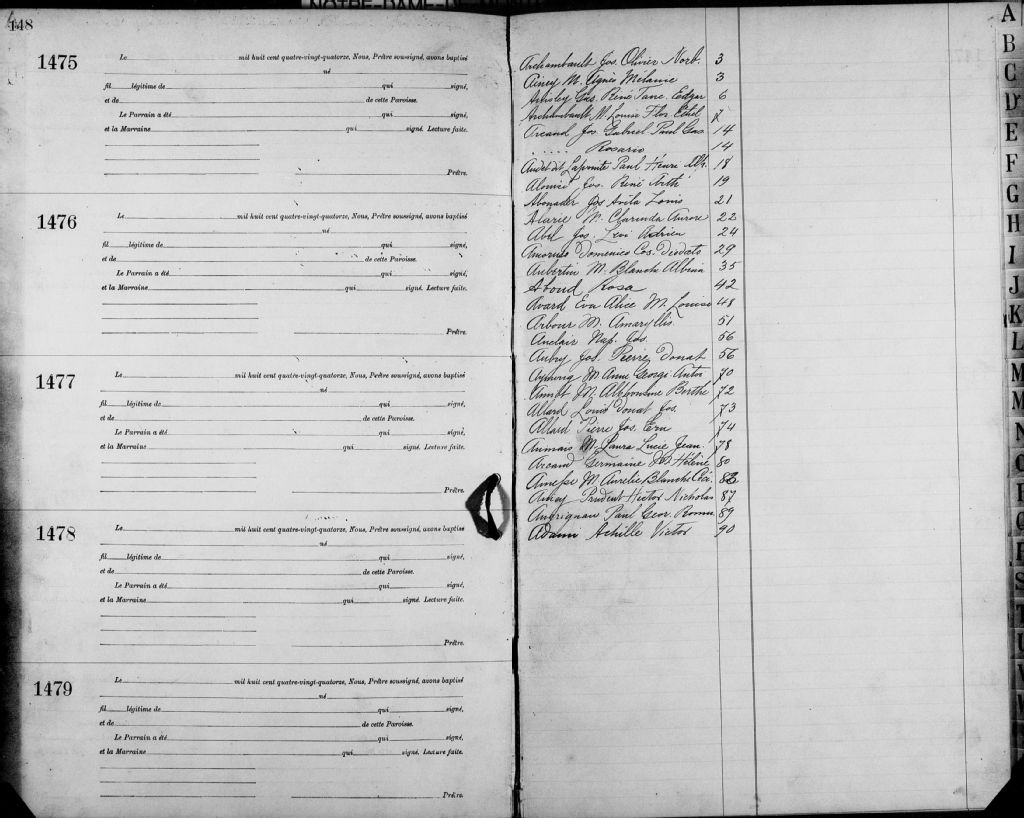 NOTRE-DAME-DE
148
1475
Le mil huit cent quatre-vingt-quatorze, Nous, Prêtre soussigné, avons baptisé
né
fil légitime de qui signé,
et de de cette Paroisse.
Le Parrain a été qui signé,
et la Marraine qui signé. Lecture faite.
Prêtre.
1476
Le mil huit cent quatre-vingt-quatorze, Nous, Prêtre soussigné, avons baptisé
né
fil légitime de qui signé,
et de de cette Paroisse.
Le Parrain a été qui signé,
et la Marraine qui signé. Lecture faite.
Prêtre.
1477
Le mil huit cent quatre-vingt-quatorze, Nous, Prêtre soussigné, avons baptisé
né
fil légitime de qui signé,
et de de cette Paroisse.
Le Parrain a été qui signé,
et la Marraine qui signé. Lecture faite.
Prêtre.
1478
Le mil huit cent quatre-vingt-quatorze, Nous, Prêtre soussigné, avons baptisé
né
fil légitime de qui signé,
et de de cette Paroisse.
Le Parrain a été qui signé,
et la Marraine qui signé. Lecture faite.
Prêtre.
1479
Le mil huit cent quatre-vingt-quatorze, Nous, Prêtre soussigné, avons baptisé
né
fil légitime de qui signé,
et de de cette Paroisse.
Le Parrain a été qui signé,
et la Marraine qui signé. Lecture faite.
Prêtre.
Archambault Jos. Olivier Norb. 3
Ainey M. Agnès Mélanie 3
Geo. René Tanc. Edgar 6
Archambault M. Louise Flor. Ethel 7
Arcand Jos. Gabriel Paul Gas. 14
..... Rosario 14
Audet dit Lapointe Paul Henri Alf. 18
Jos. René Arth 19
Abonader Jos Avila Louis 21
Alarie M. Clarinda Aurore 22
Abel Jos. Levi Adrien 24
Amoruso Domenico Cos. Diodats 29
Aubertin M. Blanche Albina 35
Aboud Rosa 42
Avard Eva Alice M. Louise 48
Arbour M. Amaryllis 51
Anclair Nap. Jos. 56
Aubry Jos. Pierre Donat 56
M. Anne Georgi. Antoi 70
M. Alphonsine Berthe 72
Allard Louis Donat Jos. 73
Allard Pierre Jos. Ern 74
Aumais M. Laura Lucie Jean. 78
Arcand Germaine M. Hélène 80
M. Aurelie Blanche Céci. 83
Prudent Hector Nicholas 87
Paul Geor. Romu 89
Adam Achille Victor 90
A
B
C
D
E
F
G
H
I
J
K
L
M
N
O
P
Q
R
S
T
U
V